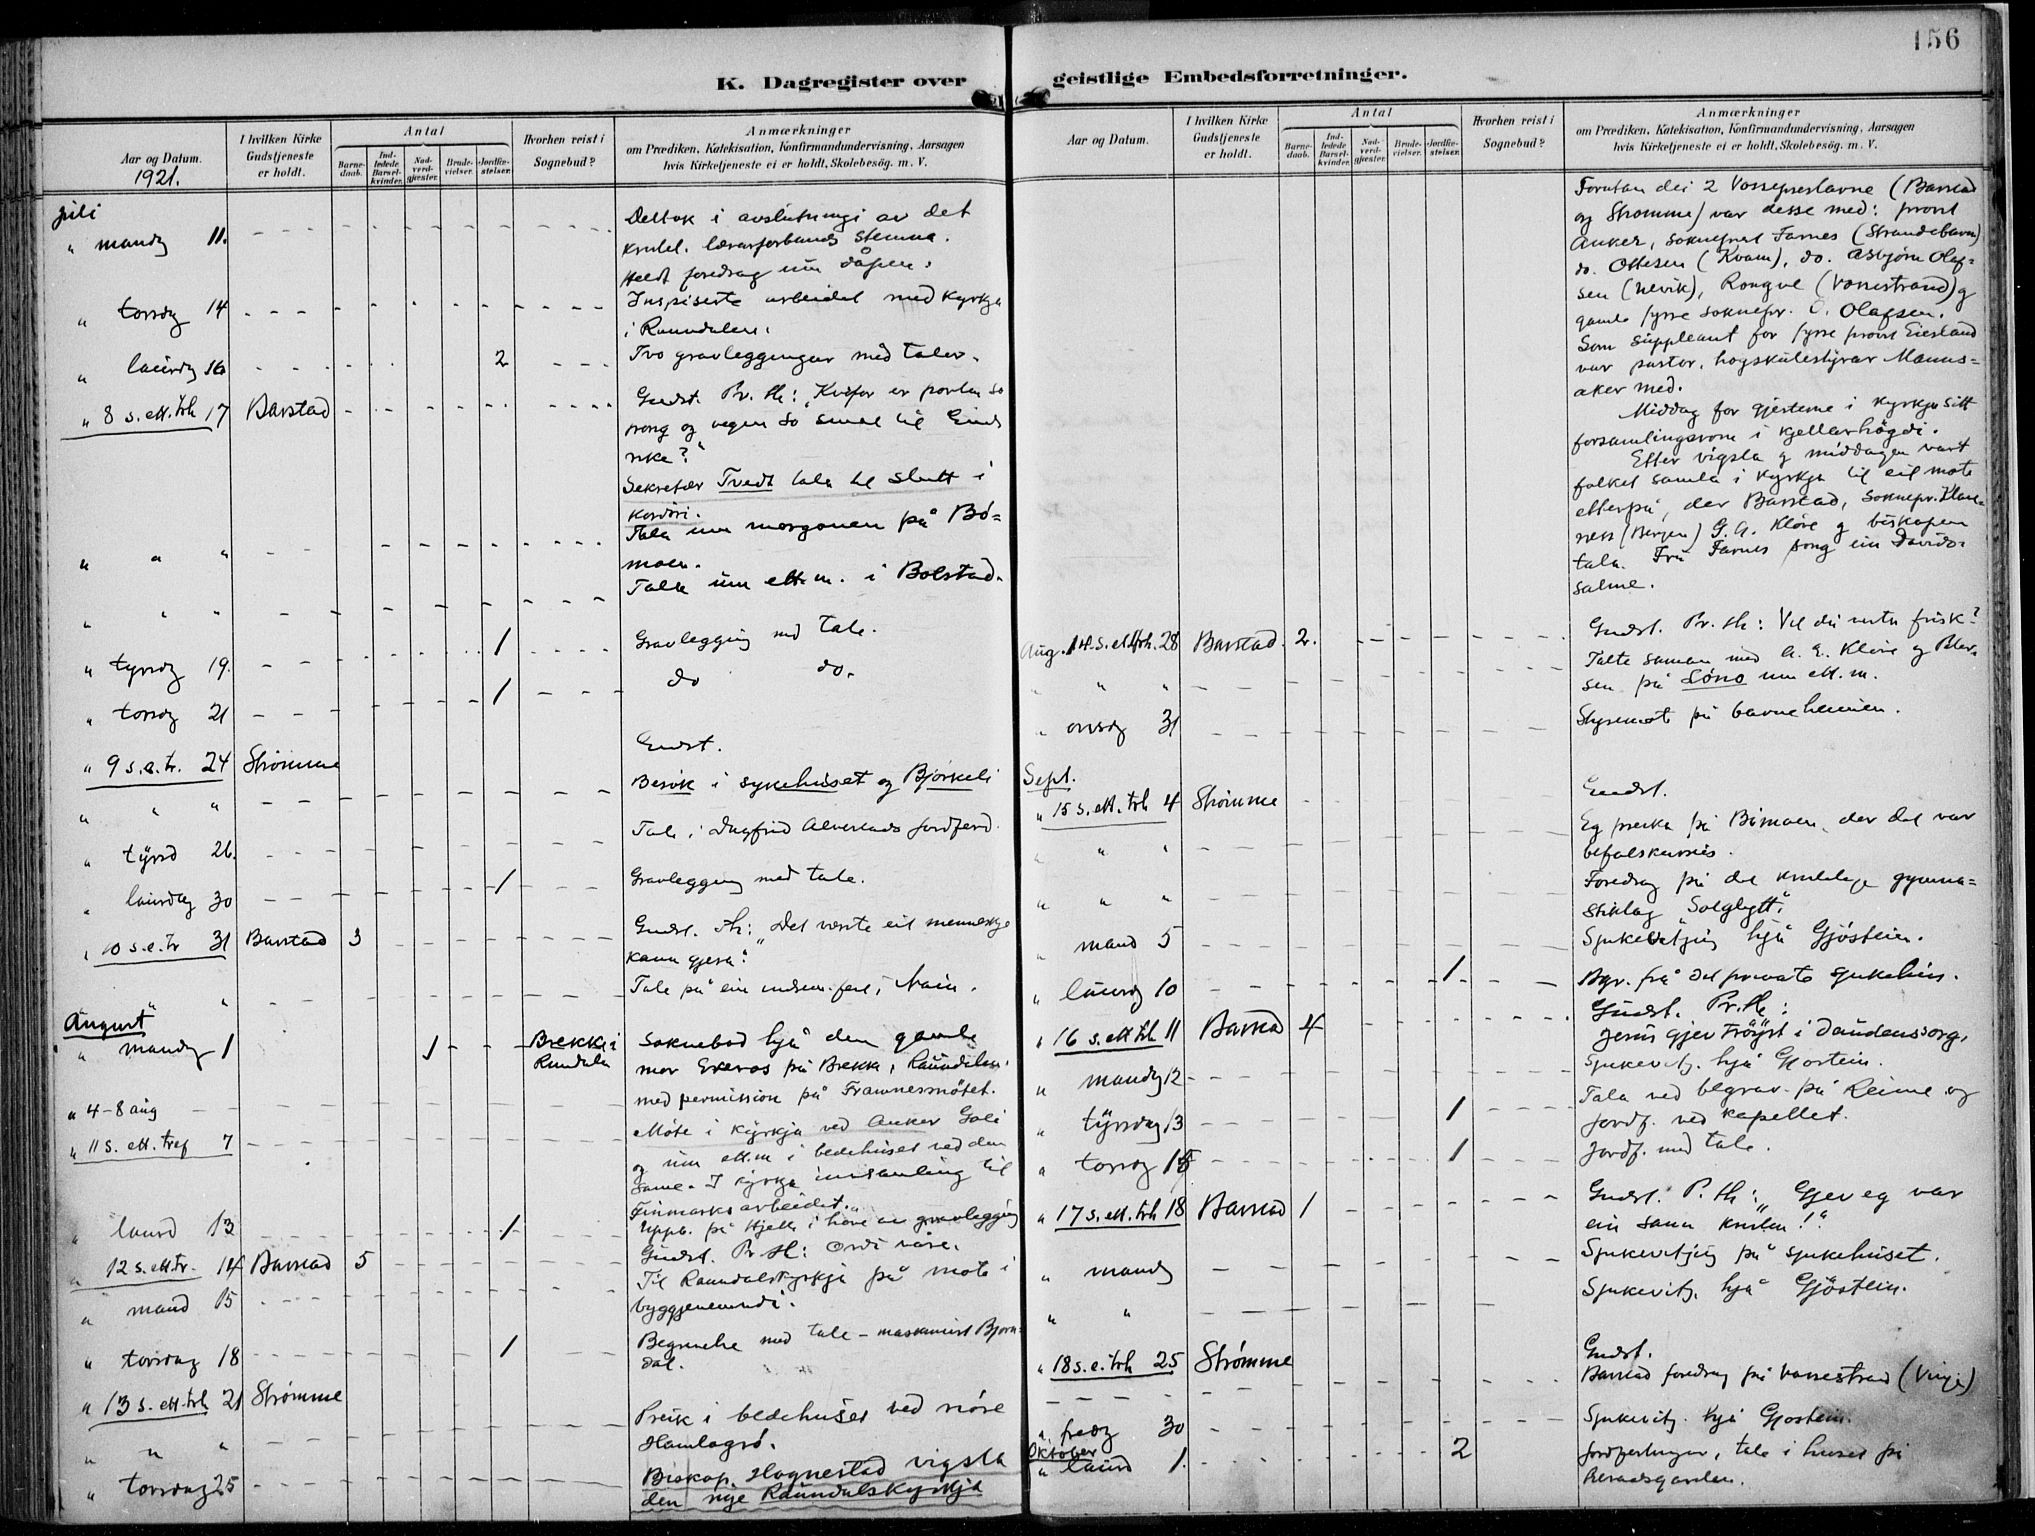 156
K. Dagregister over geistlige Embedsforretninger.
Aar og Datum.
1921.
I hvilken Kirke Gudstjeneste er holdt.
Antal
Barne-daab.
Ind-ledede Barsel-kvinder.
Nad-verd-gjæster.
Brude-vielser.
Jordfæ-stelser.
Hvorhen reist i Sognebud?
Anmærkninger
om Prædiken, Katekisation, Konfirmandundervisning, Aarsagen
hvis Kirketjeneste ei er holdt, Skolebesög. m. V.
Juli
" mandg 11. Deltok i avslutningi av det
kristel. lærarforbunds stemna.
Heldt foredrag um dåpen.
" torsdg 14 Inspiserte arbeidet med kyrkja
i Raundalen.
" laurdg 16 2 Tvo gravleggingar med talor.
" 8 s. ett. trh 17 Barstad Gudst. Pr. th: "Kvifor er porten so
trong og vegen so smal til Guds
rike?"
Sekretær Tvedt tala til slutt i
kordøri.
" " " Tala um morgonen på Bö=
moen.
" " " Tala um ett.m. i Bolstad.
" tyrsdg 19. 1 Gravlegging med tale.
" torsdg 21 1 do do.
" 9 s.e.tr. 24 Strømme Gudst.
" " " Besök i sykehuset og Bjørkeli
" tyrsd 26. Tale i Dagfrid Alverstads jordferd.
" laurdag 30 1 Gravlegging med tale.
" 10 s.e.tr 31 Barstad 3 Gudst. th: "Det verste eit menneskje
kann gjera."
" " Tale på ein misjon. fest i
August
" mandag 1 1 Brekke i Rundalen Soknebod hjå den gamle
mor på Brekke, Raundalen.
" 4-8 aug med permission på Framnesmötet.
" 11 s. ett. tref 7 Möte i kyrkja ved Anker Goli
og um ett.m i bedehuset ved den
same. I kyrkja innsamling til
Finmarksarbeidet.
" laurd 13 1 Uppb. på Hjelle i höve av gravlegging
" 12 s. ett. tr. 14 Barstad 5 Gudst. Pr. th: Ordi våre.
" mand 15 Til Raundalskyrkja på möte i
byggjenemndi.
" torsdag 18 1 Begravelse med tale - maskinist Bjørn=
dal.
" 13 s. ett. trh 21 Strømme
" " " Preik i bedehuset ved nöre
Hamlagrö.
" torsdag 25 Biskop Hognestad vigsla
den nye Raundalskyrkja
Aar og Datum.
I hvilken Kirke Gudstjeneste er holdt.
Antal
Barne-daab.
Ind-ledede Barsel-kvinder.
Nad-verd-gjæster.
Brude-vielser.
Jordfæ-stelser.
Hvorhen reist i Sognebud?
Anmærkninger
om Prædiken, Katekisation, Konfirmandundervisning, Aarsagen
hvis Kirketjeneste ei er holdt, Skolebesög. m. V.
Forutan dei 2 Vosseprestarne (Barstad
og Strømme) var desse med: prost
Anker, sokneprest Farnes (Strandebarm)
do. Ottesen (Kvam), do. Asbjørn Olaf=
sen (Ulvik), Rongve (Vossestrand) og
gamle fyrre soknepr. O. Olafsen.
Som suppleant for fyrre prost Eiesland
var pastor, högskulestyrar Manns=
åker med.
Middag for gjesterne i kyrkja sitt
forsamlingsrom i kjellarhögdi.
Etter vigsla og middagen vart
folket samla i kyrkja til eit möte
etterpå, der Barstad, soknepr. Klave=
ness (Bergen) G. A. Kløve og biskopen
tala. Fru Farnes song ein Davids=
salme.
Aug. 14. s. ett trh. 28 Barstad. 2. Gudst. Pr. th: Vil du verta frisk?
" " " Talte saman med A. E. Kløve og
sen på Löno um ett.m.
" onsdg 31 Styremöte på barneheimen.
Sept.
" 15 s. ett. trh 4 Strømme Gudst.
" " " Eg preika på Bömoen, der det var
befalskursus.
" " " Foredrag på det kristelege gymna=
stiklag "Solglytt".
" mand 5 Sjukevitjing hjå Gjöstein.
" laurdg 10 1 Bgr. frå det private sjukehus.
" 16 s. ett trh 11 Barstad 4 Gudst. Pr. th:
Jesus gjev tröyst i daudens sorg.
" mandg 12 Sjukevitj. hjå Gjostein.
" tyrsdag 13 1 Tala ved begrav. på Reime og
jordf. ved kapellet.
" torsdg 15 1 Jordf. med tale.
" 17 s. ett. trh 18 Barstad 1 Gudst. P. th: "Gjev eg var
ein sann kristen!"
" mandg Sjukevitjing på sjukehuset.
" " Sjukevitj. hjå Gjöstein.
" 18 s. e. trh 25 Strømme Gudst.
Barstad foredrag på Vossestrand (Vinje)
" fredg 30 Sjukevitj. hjå Gjostein.
Oktober
" laurd 1. 2 Jordfestingar, tale i huset på